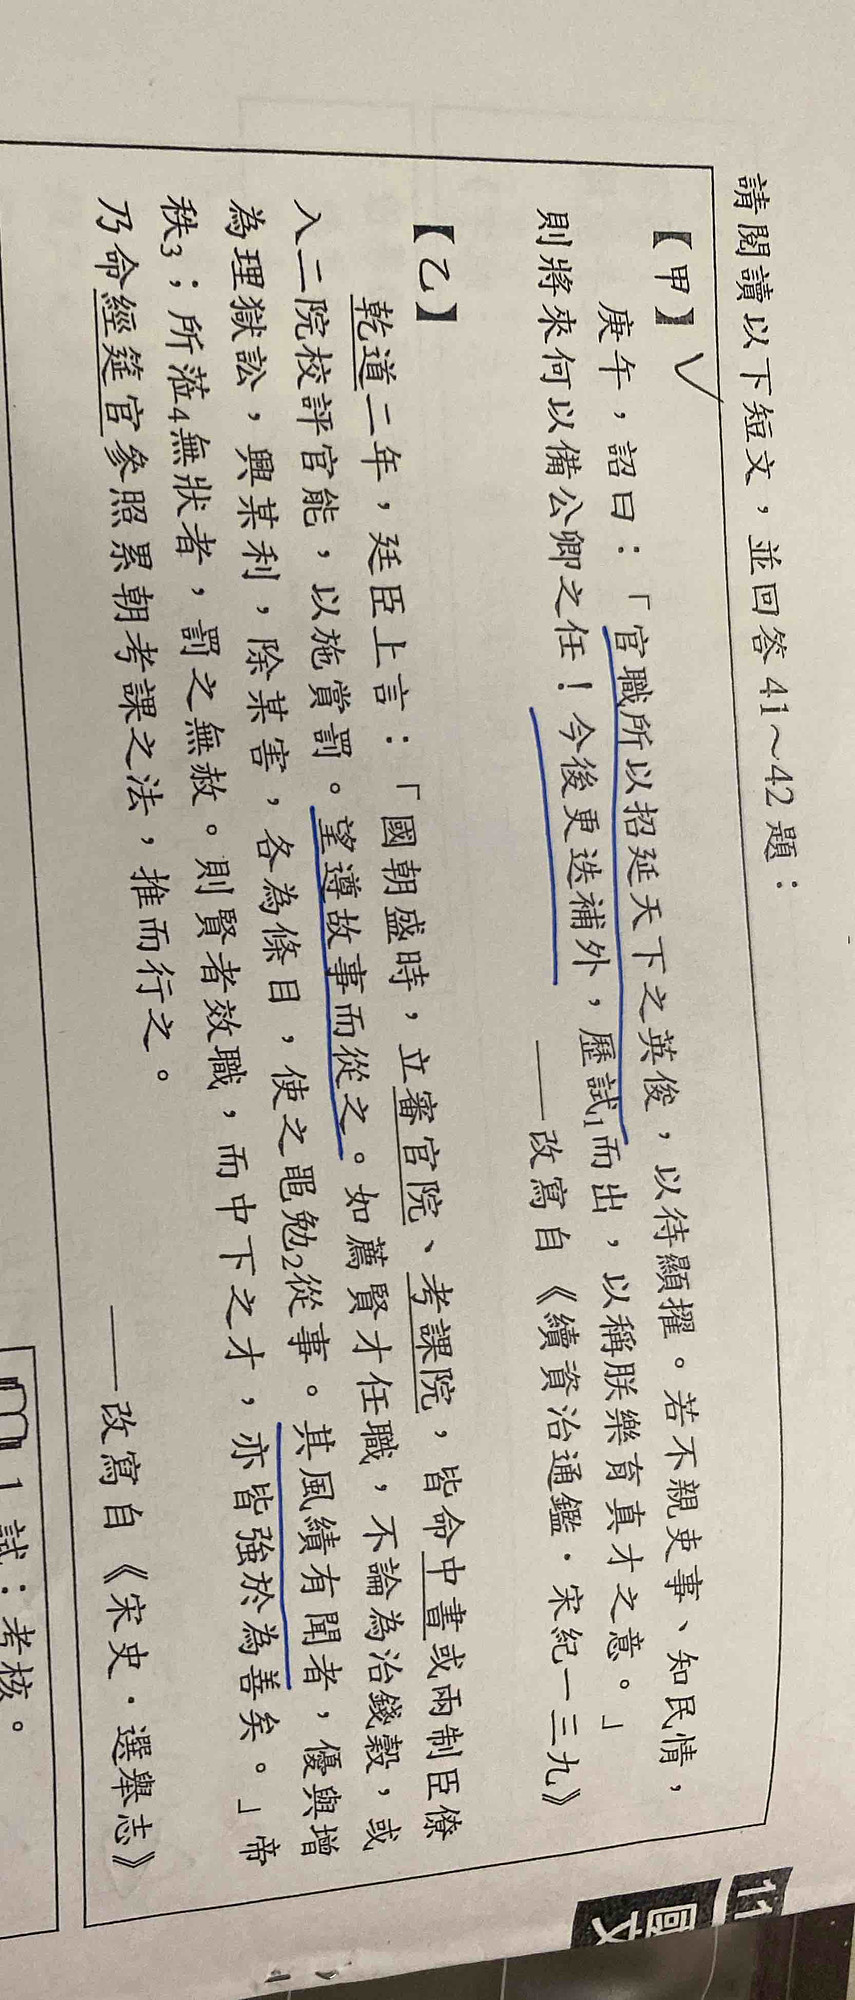 請閱讀以下短文，並回答41～42題：
【甲】
庚午，詔曰：「官職所以招延天下之英俊，以待顯擢。若不親吏事、知民情，
則將來何以備公卿之任！今後更迭補外，歷試1而出，以稱朕樂育真才之意。」
——改寫自《續資治通鑑．宋紀一三九》
【乙】
乾道二年，廷臣上言：「國朝盛時，立審官院、考課院，皆命中書或兩制臣僚
入二院校評官能，以施賞罰。望遵故事而從之。如薦賢才任職，不論為治錢穀，或
為理獄訟，興某利，除某害，各為條目，使之黽勉2從事。其風績有聞者，優與增
秩3；所蒞4無狀者，罰之無赦。則賢者效職，而中下之才，亦皆強於為善矣。」帝
乃命經筵官參照累朝考課之法，推而行之。
——改寫自《宋史．選舉志》
1 試：考核。
11
國文